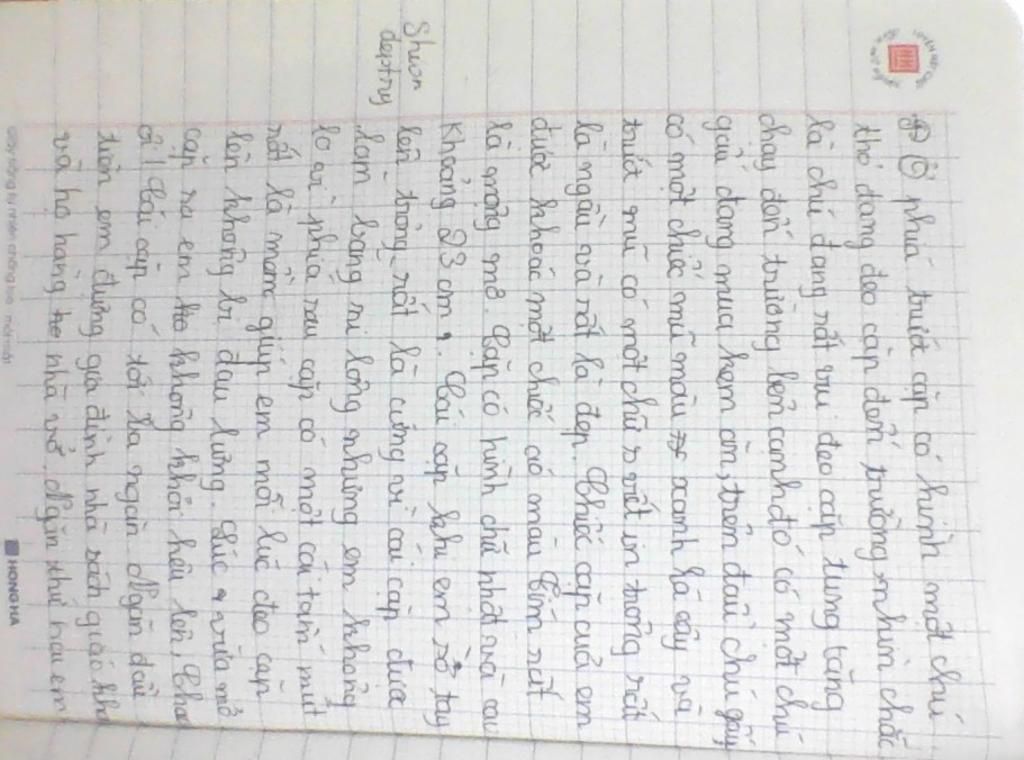 Ở phía trước cặp có hình một chú
thỏ đang đeo cặp đến trường, nhìn chắc
là chú đang rất vui đeo cặp tung tăng
chạy đến trường bên cạnh đó có một chú
gấu đang mua kem ăn, trên đầu chú gấu
có một chiếc mũ màu xanh lá cây và
trước mũ có một chữ s viết in trông rất
là ngầu và rất là đẹp. Chiếc cặp của em
được khoác một chiếc áo màu tím rất
là mộng mơ. Cặp có hình chữ nhật và cao
Khoảng 23 cm. Cái cặp khi em sờ tay
lên trông rất là cứng vì cái cặp được
làm bằng ni lông nhưng em không
lo vì phía sau cặp có một cái tấm mút
rất là mềm giúp em mỗi lúc đeo cặp
lên không bị đau lưng. Lúc vừa mở
cặp ra em không khỏi kêu lên, Cha
ôi! Cái cặp có tới ba ngăn. Ngăn đầu
tiên em đựng gia đình nhà sách giáo kho
và họ hàng nhà vở. Ngăn thứ hai em
Shion
HONG HA